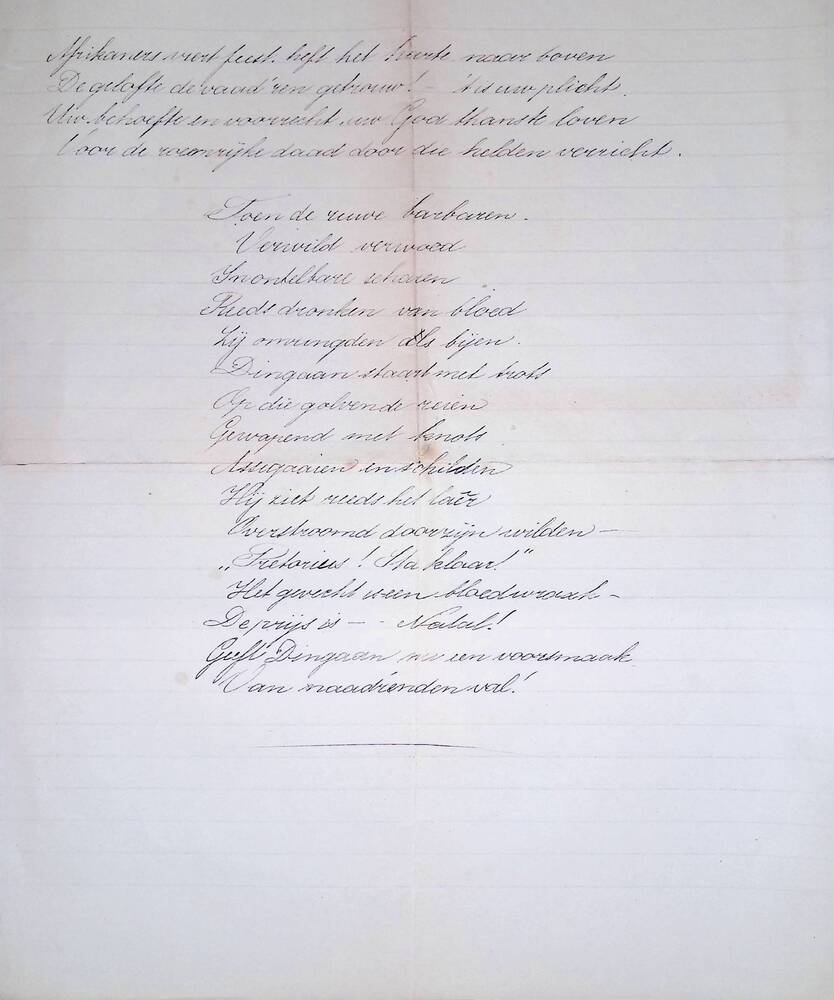 Afrikaners viert feest. heft het harte naar boven
De gelofte de vaad'ren getrouw! – 't is uw plicht.
Uw behoefte en voorrecht. uw God thansk loven
Voor de roemrijke daad door die helden verricht.
Toen de ruwe barbaren.
Verwild verwoed
In ontelbare scharen
Reeds dronken van bloed
Zij omringden als bijen.
Dingaan staart met trots
Op die golvende reien
Gewapend met knots
Assegaaien en schilden
Hij ziet reeds het laêr
Overstroomd door zijn wilden –
„Pretorius! Sta klaar!"
Het gevecht is een bloedwraak –
De prijs is – - Natal!
Geeft Dingaan nu een voorsmaak
Van naad'renden val!